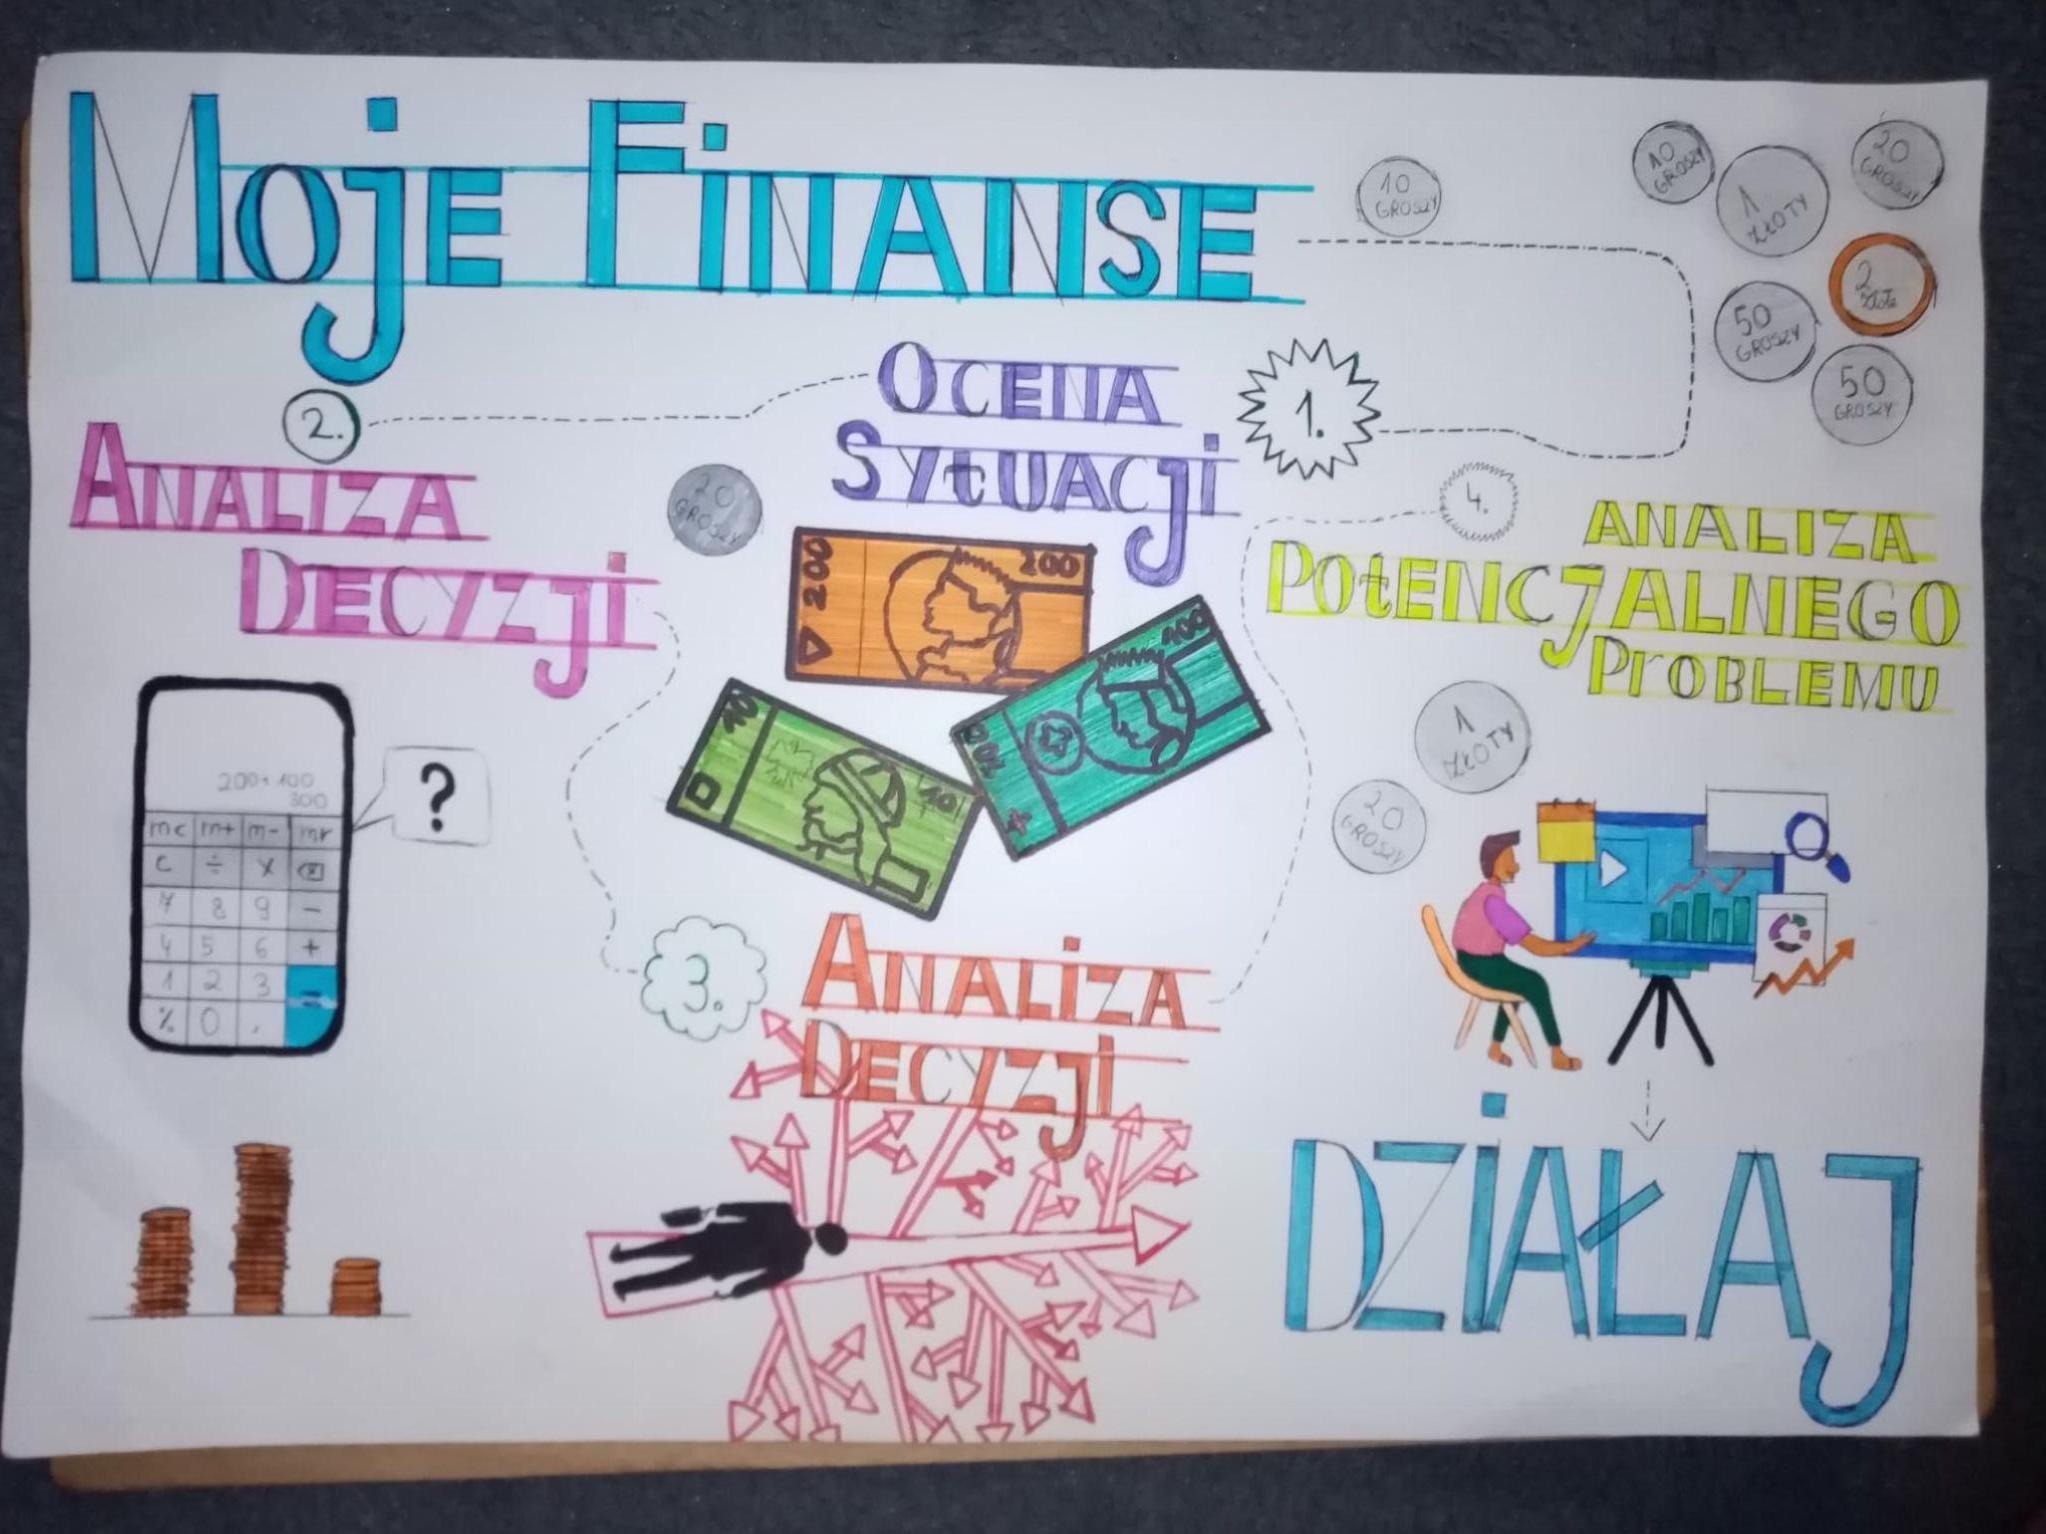 MOjE FiNANSE
10
GROSZY
10
GROSZY
1
ZŁOTY
20
GROSZY
2
złote
50
GROSZY
50
GROSZY
1.
OCENA
SYtUACji
2.
ANALiZA
DECYZji
20
GROSZY
4.
ANALIZA
POtENCJALNEGO
PrOBLEMU
200
200
100
100
10
10
200+100
300
mc m+ m- mr
C ÷ X
7 8 9 -
4 5 6 +
1 2 3 =
% 0 ,
?
1
ZŁOTY
20
GROSZY
3.
ANALiZA
DECYZji
DZiAŁAJ